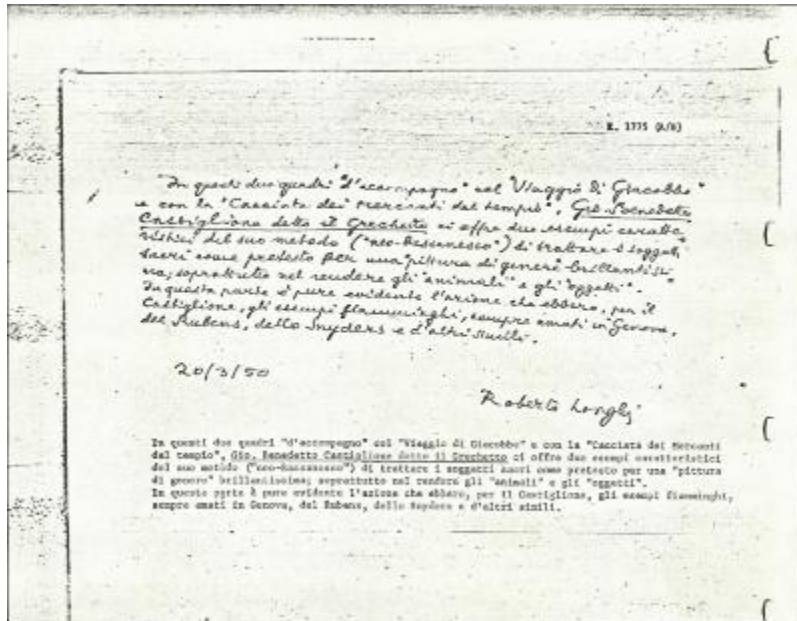 E. 1775 (A/B)
In questi due quadri "d'accompagno" col "Viaggio di Giacobbe"
e con la "Cacciata dei Mercanti dal tempio", Gio. Benedetto
Castiglione detto il Grechetto ci offre due esempi caratte
ristici del suo metodo ("neo-bassanesco") di trattare i soggetti
sacri come pretesto per una "pittura di genere" brillantissi
ma; soprattutto nel rendere gli "animali" e gli "oggetti".
In questa parte è pure evidente l'azione che ebbero, per il
Castiglione, gli esempi fiamminghi, sempre amati in Genova,
del Rubens, dello Snyders e d'altri simili.
20/3/50
Roberto Longhi
In questi due quadri "d'accompagno" col "Viaggio di Giacobbe" e con la "Cacciata dei Mercanti
dal tempio", Gio. Benedetto Castiglione detto il Grechetto ci offre due esempi caratteristici
del suo metodo ("neo-bassanesco") di trattare i soggetti sacri come pretesto per una "pittura
di genere" brillantissima; soprattutto nel rendere gli "animali" e gli "oggetti".
In questa parte è pure evidente l'azione che ebbero, per il Castiglione, gli esempi fiamminghi,
sempre amati in Genova, del Rubens, dello Snyders e d'altri simili.